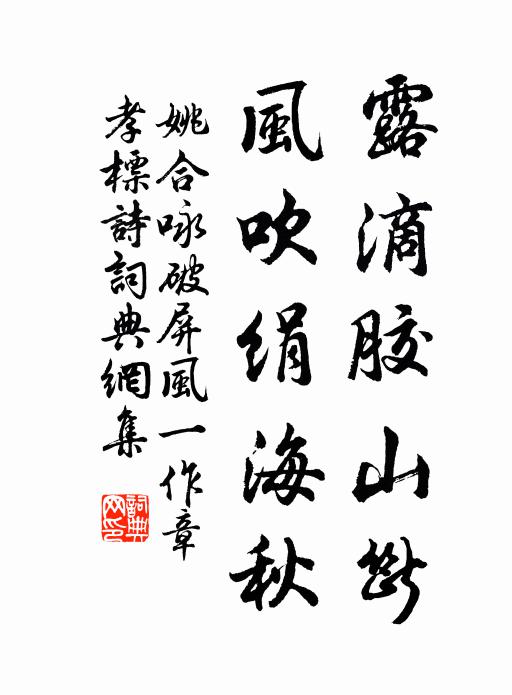 露滴胶山斷
風吹絹海秋
姚合咏破屏風一作章
孝標詩詞典網集
詞典网印